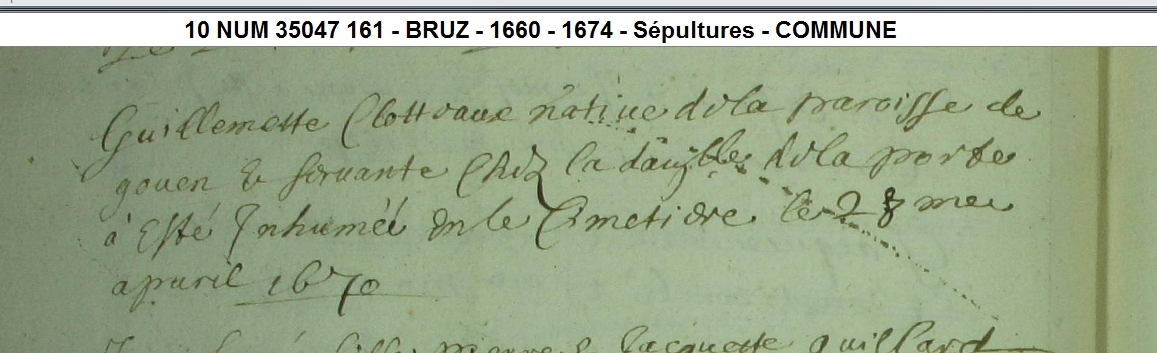 10 NUM 35047 161 - BRUZ - 1660 - 1674 - Sépultures - COMMUNE
Guillemette Clotteaux native de la paroisse de
gouen & servante chez la de la porte
à Esté Inhumée en le Cimetiere le 28 me
apuril 1670
pierre & Jacquette guillard